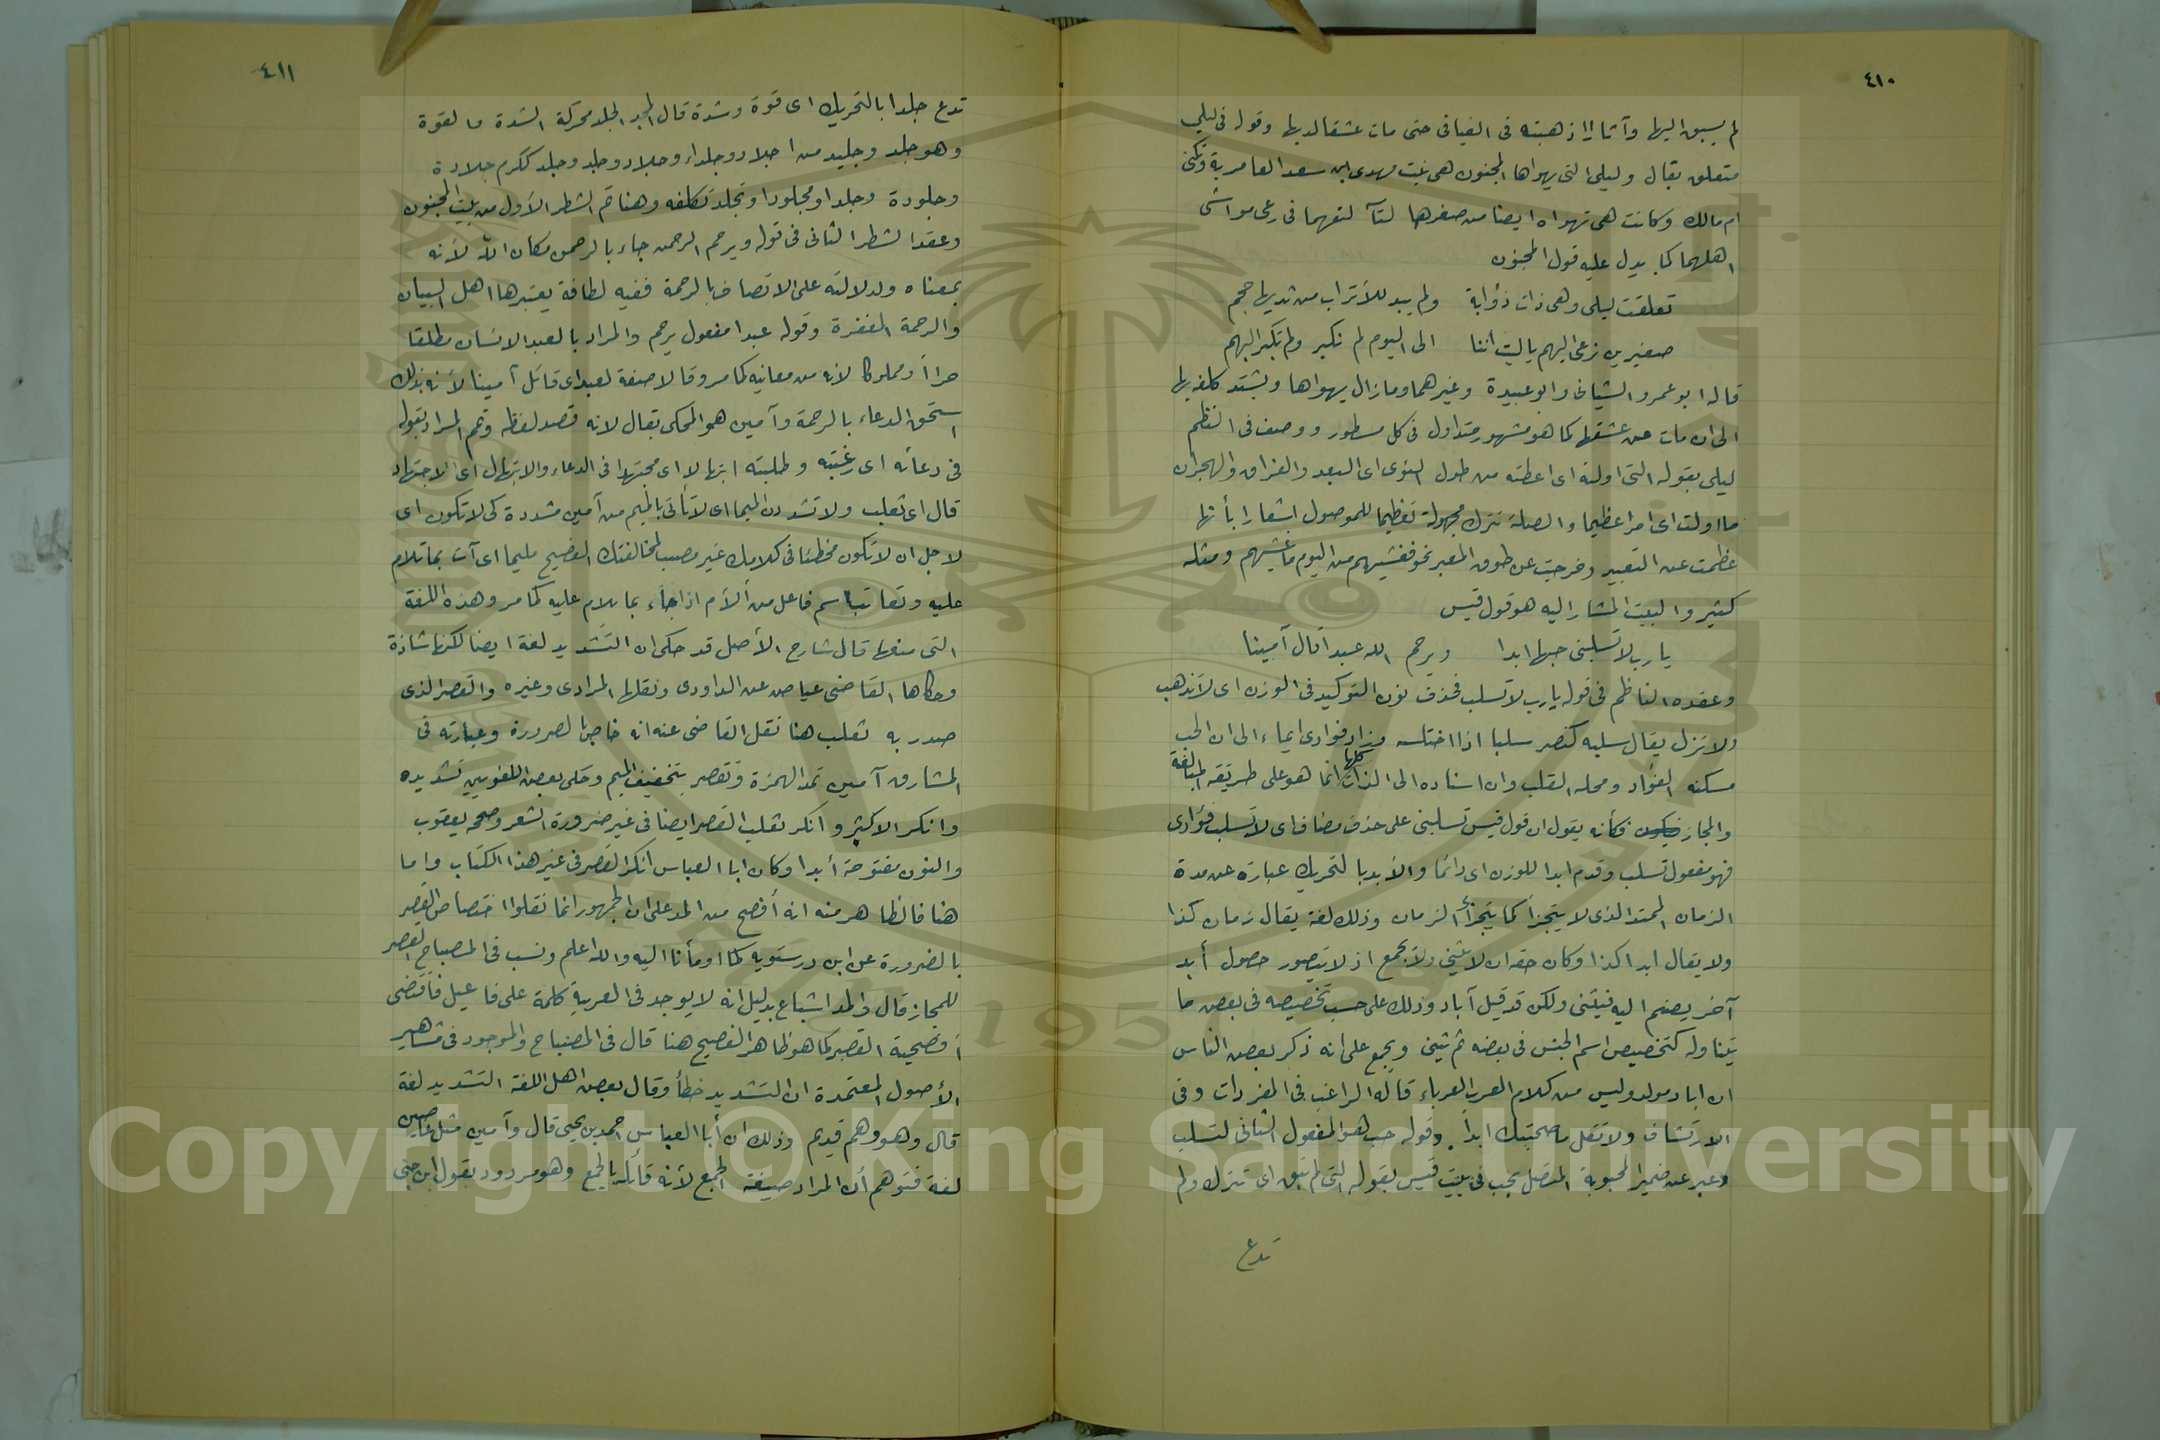 ٤١٠
لم يسبق اليها وآتاليا ذهبته فى الفيافى حتى مات عشقا لديها وقوله فى ليلى
متعلق بقال وليلى التى يهواها المجنون هى بنت مهدى بن سعد العامرية وتكنى
ام مالك وكانت هى تهواه ايضا من صغرها لتآلفهما فى رعى مواشى
اهلهما كما يدل عليه قول المجنون
تعلقت ليلى وهى ذات ذؤابة ولم يبد للأتراب من ثديها حجم
صغيرين نرعى البهم ياليت أننا الى اليوم لم نكبر ولم تكبر البهم
قاله ابو عمرو الشيبانى وابو عبيدة وغيرهما ومازال يهواها ويشتد كلفه بها
الى ان مات من عشقها كما هو مشهور متداول فى كل مسطور ووصف فى النظم
ليلى بقوله التى اولته اى اعطته من طول النوى اى البعد والفراق والهجران
ما اولت اى امرا عظيما والصلة تنزل مجهولة تعظيما للموصول اشعارا بأنها
عظمت عن التعبير وخرجت عن طوق المعبر نحو فغشيهم من اليم ما غشيهم ومثله
كثير والبيت المشار اليه هو قول قيس
يارب لا تسلبنى حبها ابدا ويرحم الله عبدا قال آمينا
وعقده الناظم فى قوله يارب لا تسلب فحذف نون التوكيد فى الوزن اى لا تذهب
ولا تزل يقال سلبه كنصر سلبا اذا اختلسه وزاد فؤادى ايماء الى ان الحب
مسكنه الفؤاد ومحله القلب وان اسناده الى الذات كلها انما هو على طريقة المبالغة
والمجاز فكأنه يقول ان قول قيس تسلبنى على حذف مضاف اى لا تسلب فؤادى
فهو مفعول تسلب وقدم ابدا للوزن اى دائما والأبد بالتحريك عبارة عن مدة
الزمان الممتد الذى لا يتجزأ كما يتجزأ الزمان وذلك لغة يقال زمان كذا
ولا يقال ابد كذا وكان حقه ان لا يثنى ولا يجمع اذ لا يتصور حصول أبد
آخر يضم اليه فيثنى ولكن قد قيل آباد وذلك على حسب تخصيصه فى بعض ما
يتناوله كتخصيص اسم الجنس فى بعضه ثم يثنى ويجمع على انه ذكر بعض الناس
ان ابادا مولد وليس من كلام العرب العرباء قاله الراغب فى المفردات وفى
الارتشاف ولا تقل ما صحبتك ابدا. وقوله حب هو المفعول الثانى لتسلب
وعبر عن ضمير المحبوبة المتصل بحب فى بيت قيس بقوله التى لم تبق اى تترك ولم
تدع
٤١١
تدع جلدا بالتحريك اى قوة وشدة قال المجد الجلد محركة الشدة والقوة
وهو جلد وجليد من اجلاد وجلداء وجلاد وجلد وجلد ككرم جلادة
وجلودة وجلدا ومجلودا وتجلد تكلفه وهنا تم الشطر الأول من بيت المجنون
وعقد الشطر الثانى فى قوله ويرحم الرحمن جاء بالرحمن مكان الله لأنه
بمعناه ولدلالته على الاتصاف بالرحمة ففيه لطافة يعتبرها اهل البيان
والرحمة المغفرة وقوله عبدا مفعول يرحم والمراد بالعبد الانسان مطلقا
حرا او مملوكا لانه من معانيه كما مر وقالا صفة لعبد اى قائل آمينا لأنه بذلك
استحق الدعاء بالرحمة وآمين هو المحكى بقال لانه قصد لفظه وتمم المراد بقوله
فى دعائه اى رغبته وطلبته ابتهالا اى مجتهدا فى الدعاء والابتهال اى الاجتهاد
قال اى ثعلب ولا تشددن الميما اى لا تأتى بالميم من آمين مشددة كى لا تكون اى
لاجل ان لا تكون مخطئا فى كلامك غير مصيب لمخالفتك الفصيح مليما اى آت بما تلام
عليه وتعاتب اسم فاعل من ألام اذا جاء بما يلام عليه كما مر وهذه اللغة
التى منعها قال شارح الأصل قد حكى ان التشديد لغة ايضا لكنها شاذة
وحكاها القاضى عياض عن الداودى ونقلها المرادى وغيره والقصر الذى
صدر به ثعلب هنا نقل القاضى عنه انه خاص بالضرورة وعبارته فى
المشارق آمين تمد الهمزة وتقصر بتخفيف الميم وحكى بعض اللغويين تشديده
وانكر الاكثر وانكر ثعلب القصر ايضا فى غير ضرورة الشعر وصححه يعقوب
والنون مفتوحة أبدا وكان ابا العباس انكر القصر فى غير هذا الكتاب واما
هنا فالظاهر منه انه أفصح من المد على ان الجمهور انما نقلوا اختصاص القصر
بالضرورة عن ابن درستويه كما اومأنا اليه والله اعلم ونسب فى المصباح القصر
للحجاز قال والمد اشباع بدليل انه لا يوجد فى العربية كلمة على فاعيل فاقتضى
أفصحية القصر كما هو ظاهر الفصيح هنا قال فى المصباح والموجود فى مشاهير
الأصول المعتمدة ان التشديد خطأ وقال بعض اهل اللغة التشديد لغة
قال وهو وهم قديم وذلك ان أبا العباس احمد بن يحيى قال وآمين مثل عاصين
لغة فتوهم أن المراد صيغة الجمع لأنه قابله بالجمع وهو مردود بقول ابن جنى
Copyright © King Saud University
1957